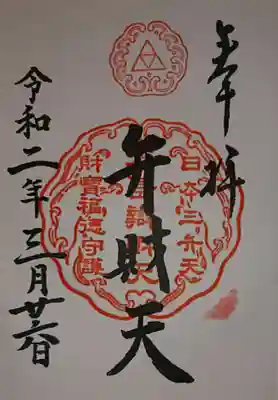 奉拝
日本三弁天
弁財天
財寳福徳守護
令和二年三月廿六日